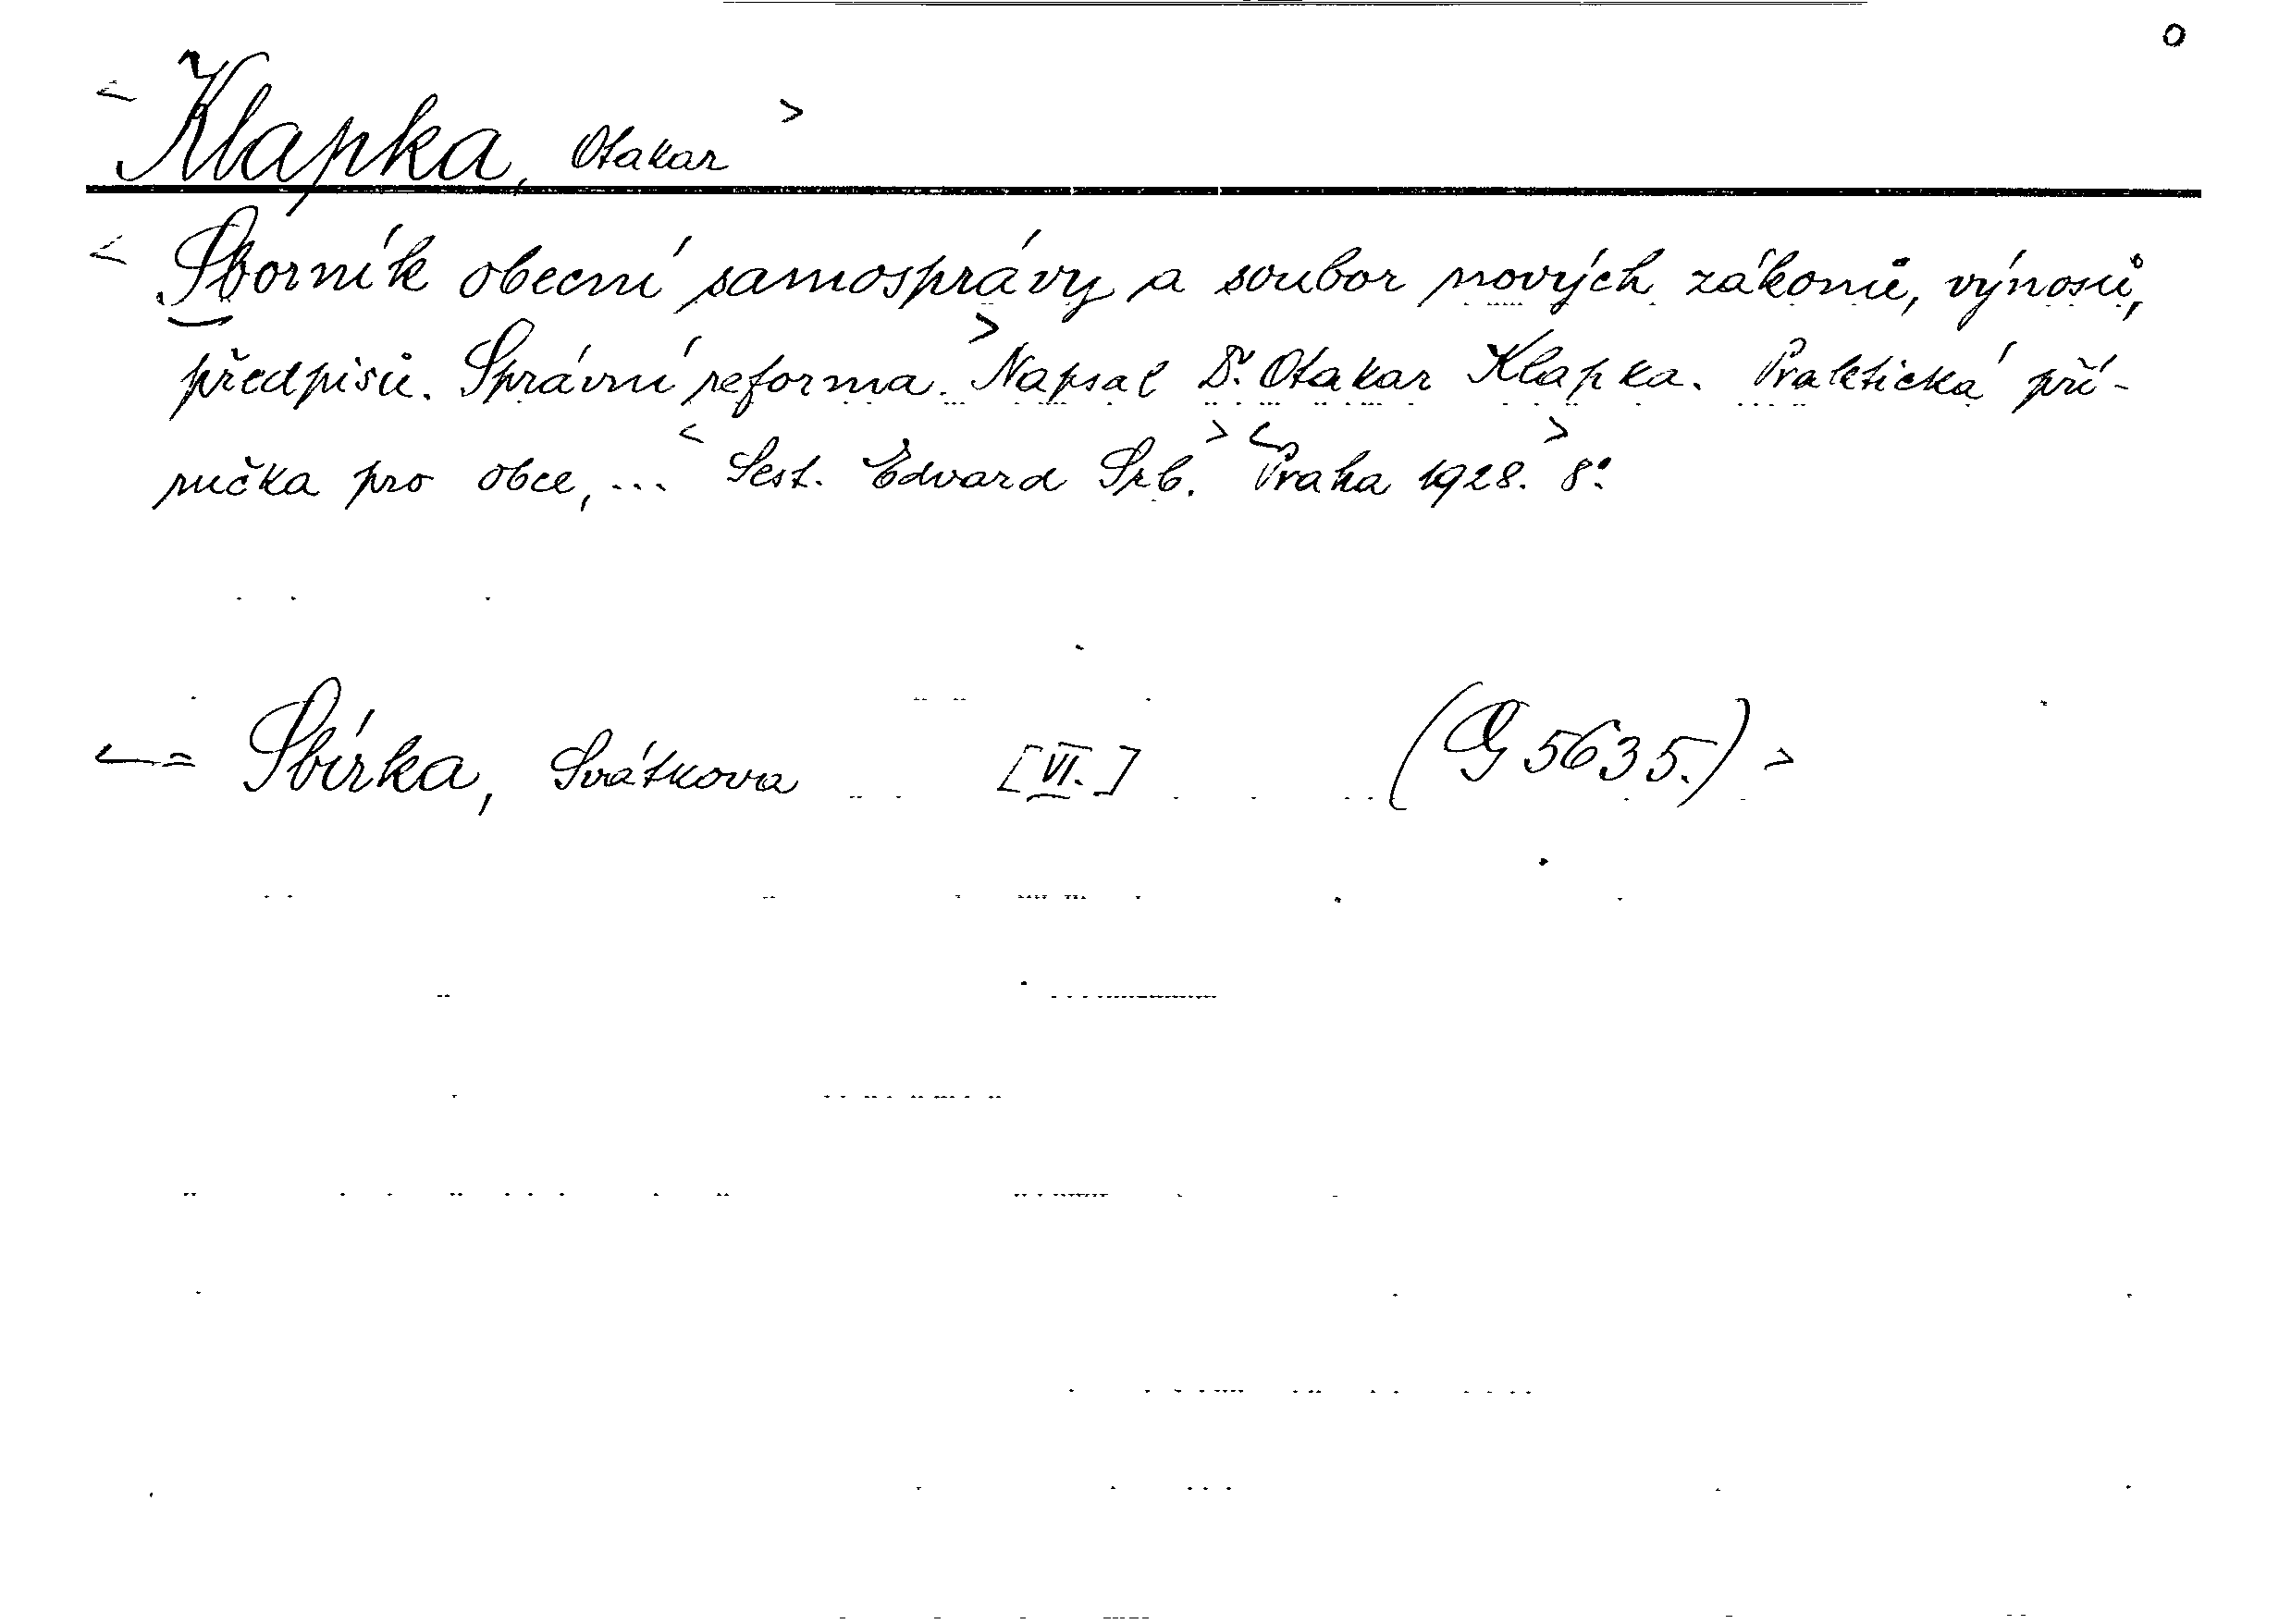 o
< Klapka, Otakar >
< Sborník obecní samosprávy a soubor nových zákonů, výnosů,
předpisů. Správní reforma. > Napsal Dr. Otakar Klapka. Praktická pří-
ručka pro obce, ... < Sest. Edvard Srb. > < Praha 1928. 8°. >
< = Sbírka, Svátkova [VI.] (G 5635.) >